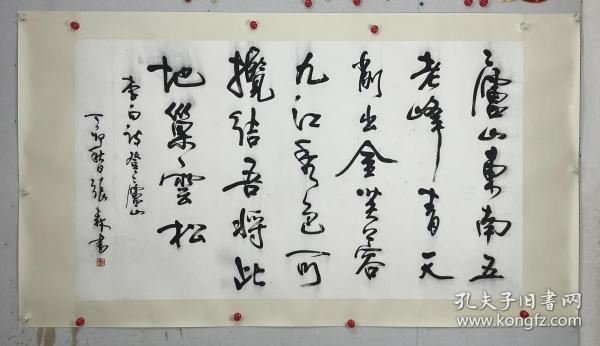 廬山東南五
老峰青天
削出金芙蓉
九江秀色可
攬結吾將此
地巢雲松
李白詩登廬山
丁卯秋日張森書
孔夫子旧书网
www.kongfz.com